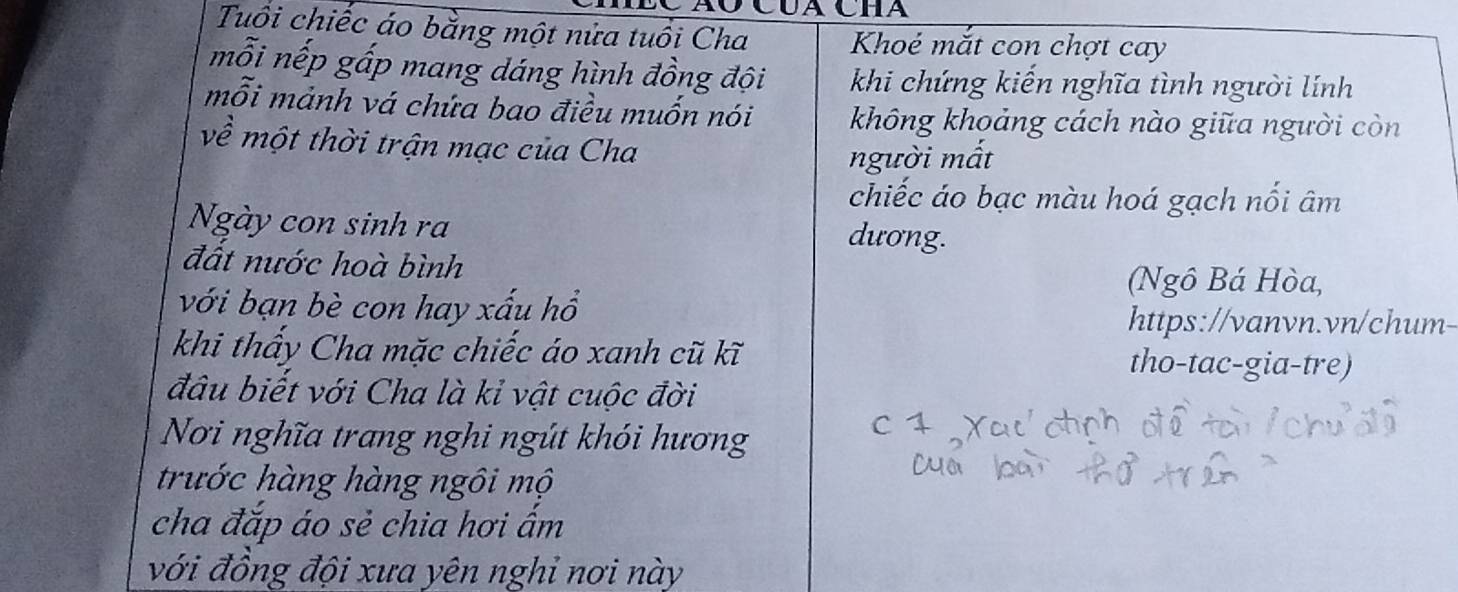 CHIẾC ÁO CỦA CHA
Tuổi chiếc áo bằng một nửa tuổi Cha
mỗi nếp gấp mang dáng hình đồng đội
mỗi mảnh vá chứa bao điều muốn nói
về một thời trận mạc của Cha
Ngày con sinh ra
đất nước hoà bình
với bạn bè con hay xấu hổ
khi thấy Cha mặc chiếc áo xanh cũ kĩ
đâu biết với Cha là kỉ vật cuộc đời
Nơi nghĩa trang nghi ngút khói hương
trước hàng hàng ngôi mộ
cha đắp áo sẻ chia hơi ấm
với đồng đội xưa yên nghỉ nơi này
Khoé mắt con chợt cay
khi chứng kiến nghĩa tình người lính
không khoảng cách nào giữa người còn
người mất
chiếc áo bạc màu hoá gạch nối âm
dương.
(Ngô Bá Hòa,
https://vanvn.vn/chum-
tho-tac-gia-tre)
C1, xác định đề tài / chủ đề
của bài thơ trên?